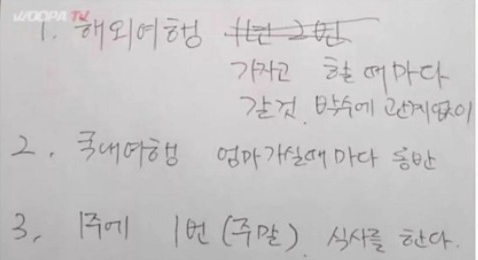 WOOPA TV
1. 해외여행 1년 2번
가자고 할때마다
갈것. 박수에 관계없이
2. 국내여행 엄마가실때마다 동반
3. 1주에 1번(주말) 식사를 한다.